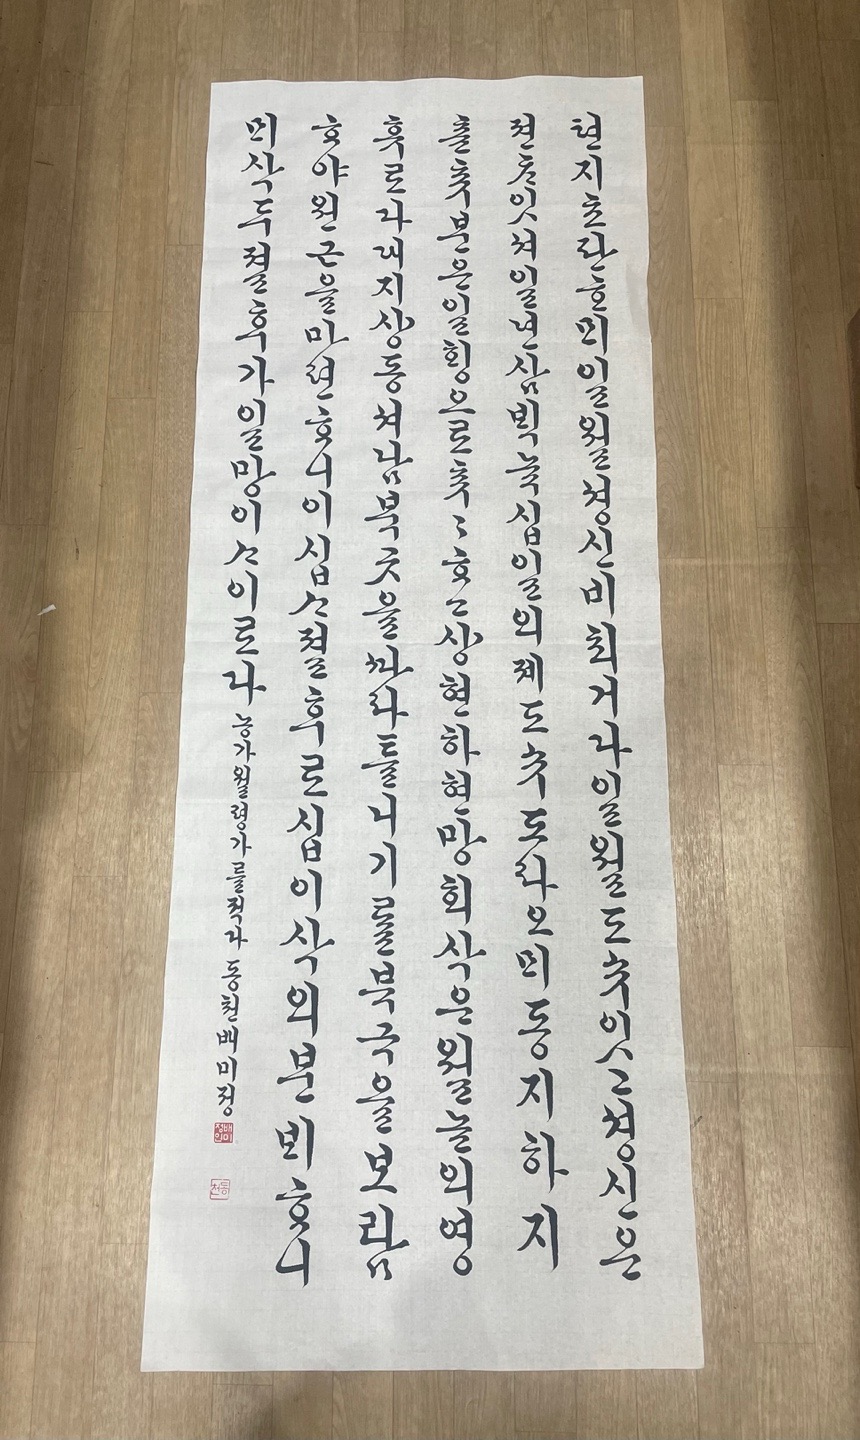 텬지초판ᄒᆞᄆᆡ일월셩신비최거다일월도수잇고셩신은
젼ᄎᆞ잇셔일년삼ᄇᆡᆨ뉵십일의제도수도라오ᄆᆡ동지하지
츈츄분은일횡으로츄ᄎᆞᄒᆞ고상현하현망회삭은월눌의영
휴로다대지상동셔남북곳을ᄯᅡ라틀니기를북극을보람
ᄒᆞ야원근을마련ᄒᆞ니이십ᄉᆞ졀후로십이삭의분ᄇᆡᄒᆞ니
ᄆᆡ삭두졀후가일망이ᄉᆞ이로다 농가월령가를적다 동천배미정
배미정인
동천